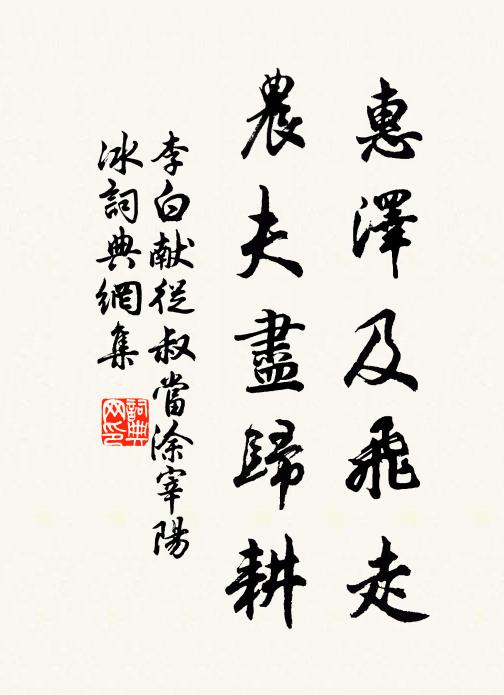 惠澤及飛走
農夫盡歸耕
李白献從叔當涂宰陽
冰詞典網集
詞典
网印